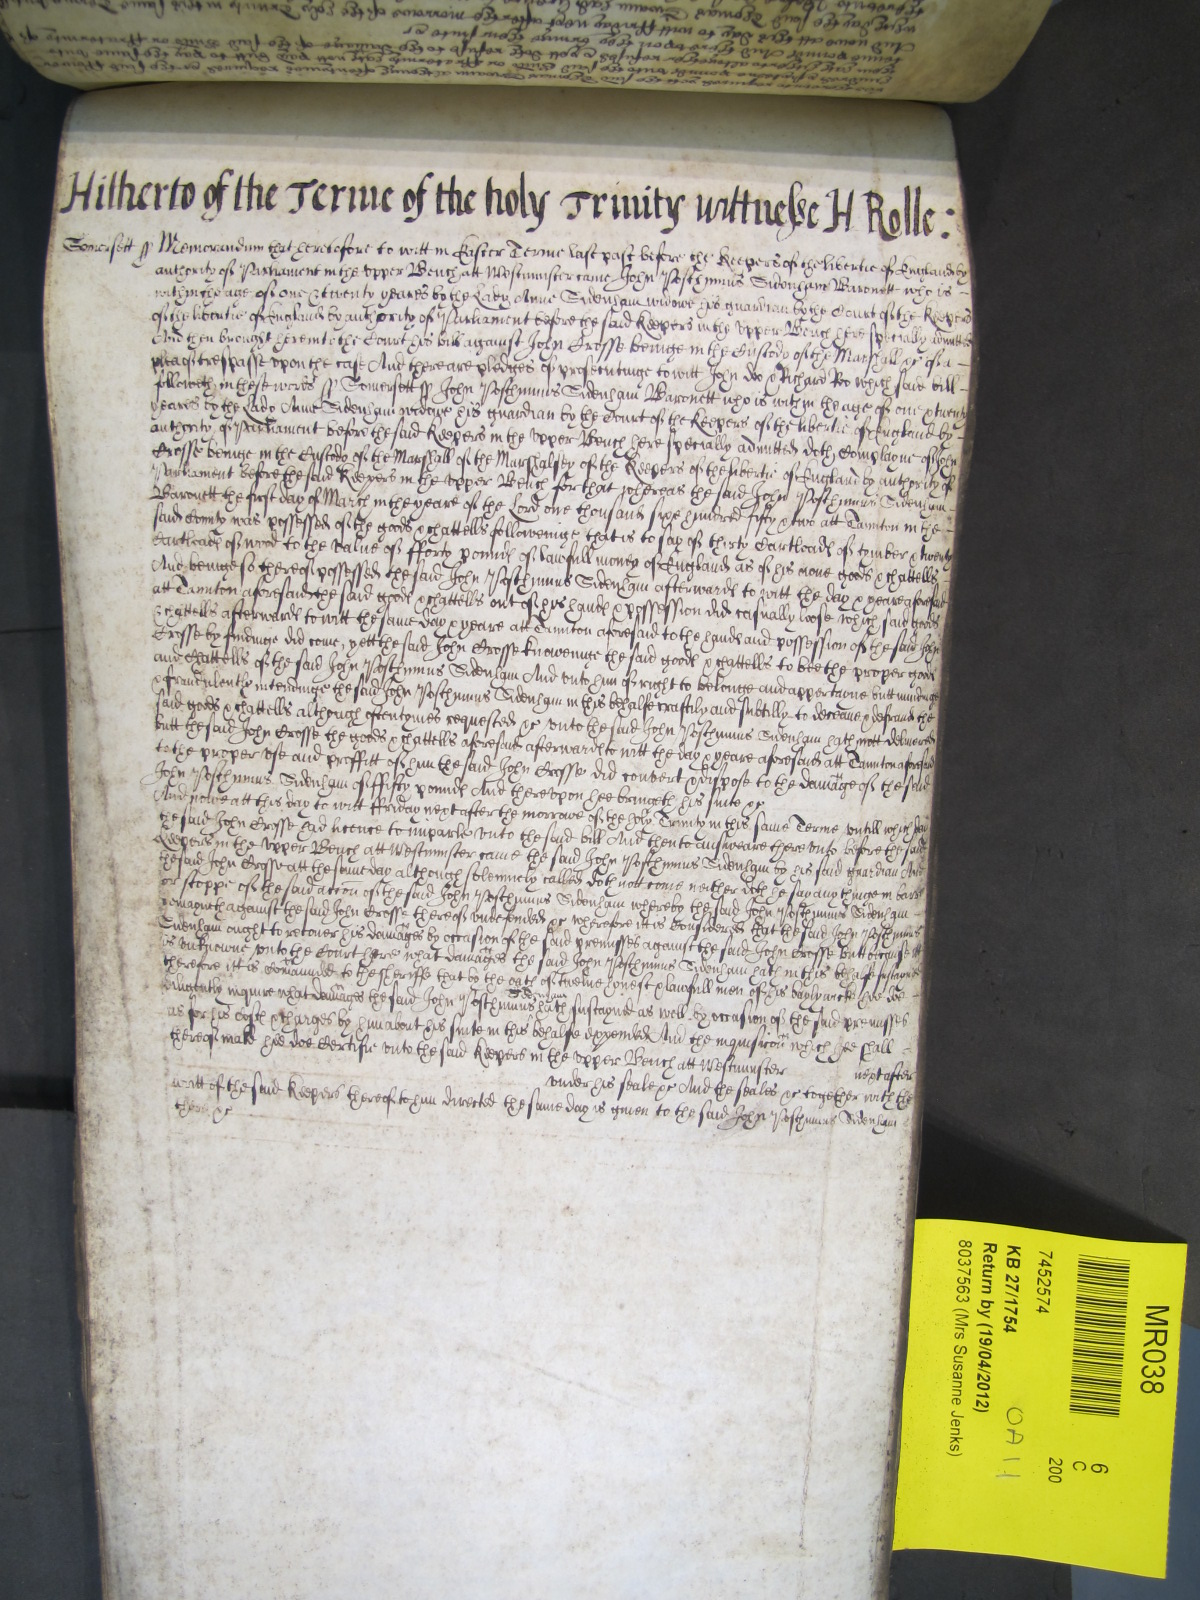 Hitherto of the Terme of the holy Trinity wittnesse H Rolle:
Somersett ss Memorandum that heretofore to witt in Easter Terme last past before the Keepers of the libertie of England by
authority of Parliament in the upper Bench att Westminster came John Posthimus Sidenham Baronett who is
within the age of one & twenty yeares by the Lady Anne Sidenham widowe his guardian by the Court of the Keepers
of the libertie of England by authority of Parliament before the said Keepers in the upper Bench here specially admitted
And then brought here into the Court his bill against John Crosse beinge in the Custody of the Marshall &c of a
plea of trespasse upon the case And there are pledges of prosecutinge to witt John Doe & Richard Roo which said bill
followeth in these words ss Somersett ss John Posthimus Sidenham Baronett who is within the age of one & twenty
yeares by the Lady Anne Sidenham widowe his guardian by the Court of the Keepers of the libertie of England by
authority of Parliament before the said Keepers in the upper Bench here specially admitted doth Complayne of John
Crosse beinge in the Custody of the Marshall of the Marshalsey of the Keepers of the libertie of England by authority of
Parliament before the said Keepers in the upper Bench for that whereas the said John Posthimus Sidenham
Baronett the first day of March in the yeare of the Lord one thousand six hundred fifty & two att Taunton in the
said County was possessed of the goods & chattells followeinge that is to say of thirty Cartloads of tymber & twenty
Cartloads of wood to the value of fforty pounds of lawfull money of England as of his owne goods & chattells
And beinge so thereof possessed the said John Posthimus Sidenham afterwards to witt the day & yeare aforesaid
att Taunton aforesaid the said goods & chattells out of his hands & possession did casually loose which said goods
& chattells afterwards to witt the same day & yeare att Taunton aforesaid to the hands and possession of the said John
Crosse by findinge did come, yett the said John Crosse knoweinge the said goods & chattells to bee the proper goods
and Chattells of the said John Posthimus Sidenham And unto him of right to belonge and appertaine butt mindinge
& fraudulently intendinge the said John Posthimus Sidenham in this behalfe craftily and subtilly to deceave & defraud the
said goods & chattells although oftentymes requested &c unto the said John Posthimus Sidenham hath nott delivered
butt the said John Crosse the goods & chattells aforesaid afterwards to witt the day & yeare aforesaid att Taunton aforesaid
to the proper use and proffitt of him the said John Crosse did convert & dispose to the damage of the said
John Posthimus Sidenham of fifty pounds And thereupon hee bringeth his suite &c
And nowe att this day to witt ffriday next after the morrowe of the holy Trinity in this same Terme untill which day
the said John Crosse had licence to imparle unto the said bill And then to answeare thereunto before the said
Keepers in the upper Bench att Westminster came the said John Posthimus Sidenham by his said guardian And
the said John Crosse att the same day although solemnely called doth nott come neither doth he say any thinge in barre
or stoppe of the said accon of the said John Posthimus Sidenham whereby the said John Posthimus Sidenham
remaineth against the said John Crosse thereof undefended &c wherefore itt is Considered that the said John Posthimus
Sidenham ought to recover his damages by occasion of the said premisses against the said John Crosse butt because itt
is unknowne unto the Court here what damages the said John Posthimus Sidenham hath in this behalfe sustayned
therefore itt is commaunded to the sheriffe that by the oath of twelve honest & lawfull men of his bayliwicke hee doe
diligently inquire what damages the said John Posthimus Sidenham hath sustayned as well by occasion of the said premisses
as for his costs & charges by him about his suite in this behalfe expended And the inquisicon which hee shall
thereof make hee doe Certifie unto the said Keepers in the upper Bench att Westminster next after
under his seale &c And the seales &c together with the
writt of the said Keepers thereof to him directed the same day is given to the said John Posthimus Sidenham
there &c
MR038
6
C
200
7452574
KB 27/1754
Return by (19/04/2012)
8037563 (Mrs Susanne Jenks)